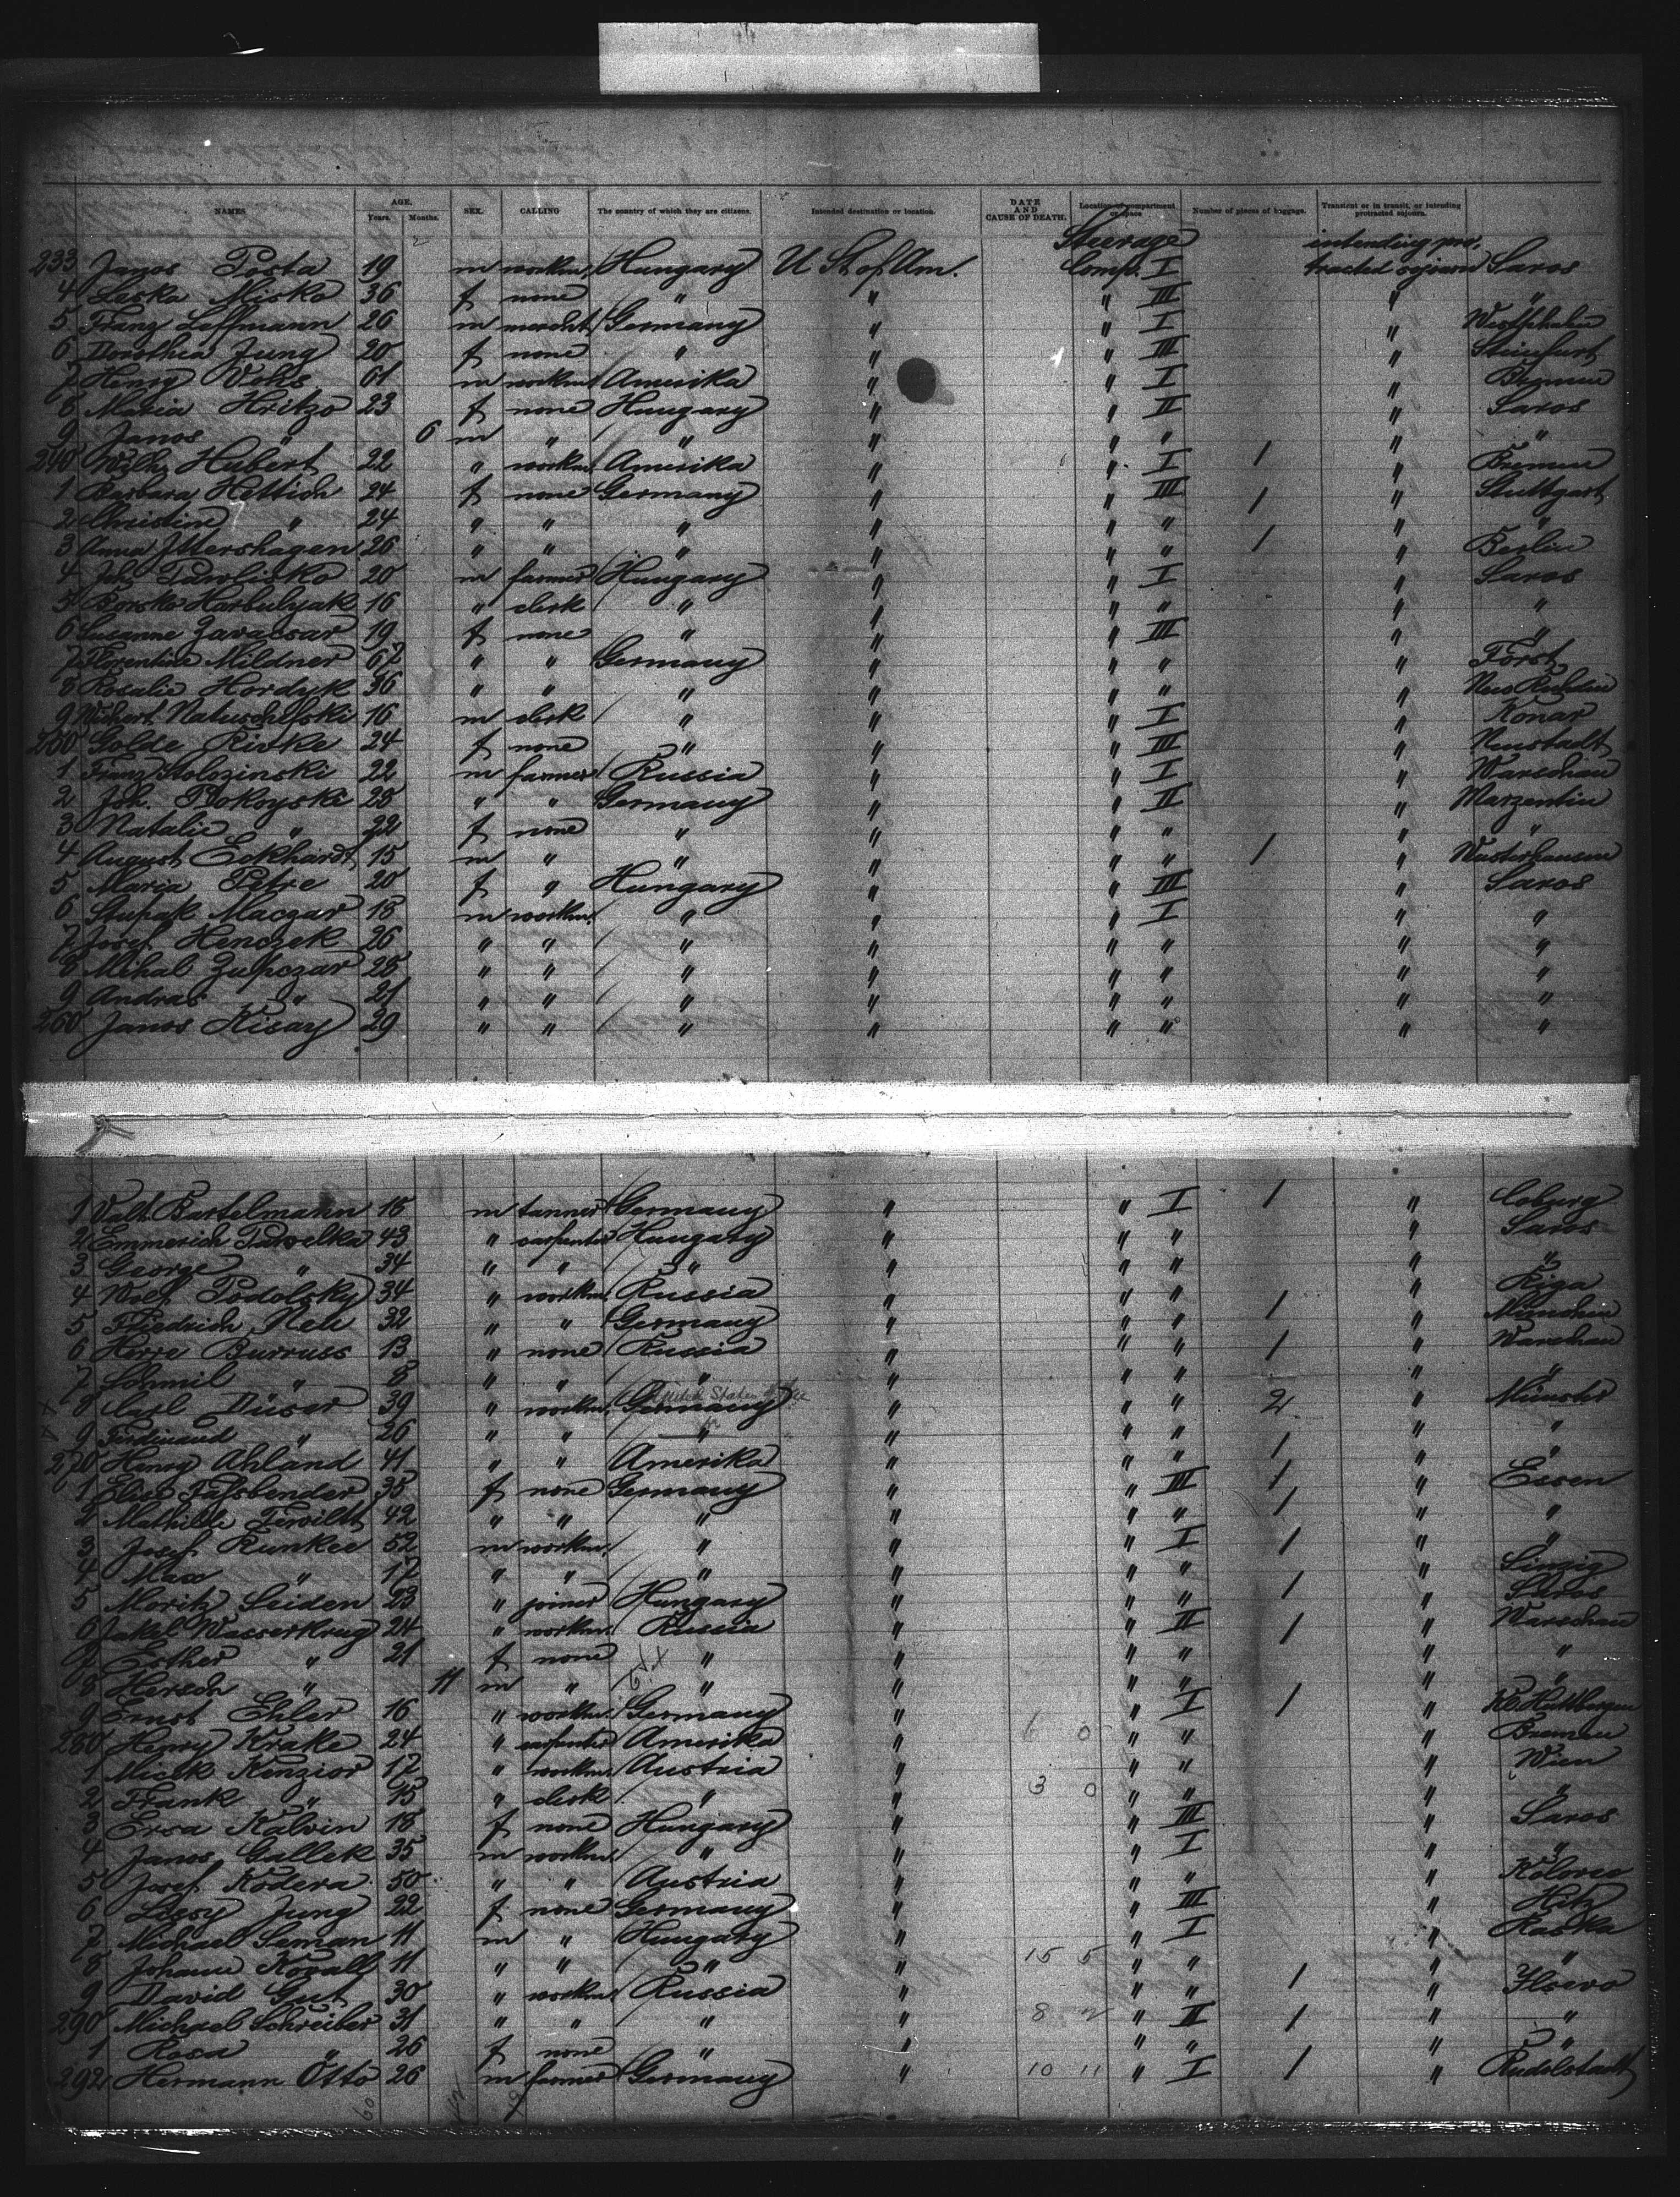 NAMES AGE. Years. Months. SEX. CALLING The country of which they are citizens. Intended destination or location. DATE AND CAUSE OF DEATH. Location of compartment or space Number of pieces of baggage. Transient or in transit, or intending protracted sojourn.
Steerage intending pro-
233 Janos Posta 19 m workm. Hungary U St of Am. Comp. I tracted sojourn Saros
4 Laska Misko 36 f none " " " III " "
5 Franz Loffmann 26 m mercht Germany " " I " Westphalen
6 Dorothea Jung 20 f none " " " III " Steinfurt
7 Henry Vohs 61 m workm. Amerika " " I " Bremen
8 Maria Hritzo 23 f none Hungary " " II " Saros
9 Janos " 6 m " " " " " " "
240 Wilh. Hubert 22 " workm. Amerika " " I 1 " Bremen
1 Barbara Hettich 24 f none Germany " " III 1 " Stuttgart
2 Christine " 24 " " " " " " " "
3 Anna Ittershagen 26 " " " " " " 1 " Berlin
4 Joh. Pawlisko 20 m farmer Hungary " " I " Saros
5 Borsko Harbulyak 16 " clerk " " " " " "
6 Susanne Zavacsar 19 f none " " " III " "
7 Florentine Mildner 67 " " Germany " " " " Forst
8 Rosalie Hordyk 36 " " " " " " "
9 Natuschefski 16 m clerk " " " I " Konar
250 Golde Rivke 24 f none " " " III " Neustadt
1 Franz Stolozinski 22 m farmer Russia " " I " Warschau
2 Joh. Pokoyski 28 " " Germany " " II " Marzentin
3 Natalie " 22 f none " " " " " "
4 August Eckhardt 15 m " " " " " 1 " Wusterhausen
5 Maria Petre 20 f " Hungary " " III " Saros
6 Stupak Maczar 18 m workm. " " " I " "
7 Josef Henczek 26 " " " " " " " "
8 Mihal Zupczar 28 " " " " " " " "
9 Andras " 21 " " " " " " " "
260 Janos Kisay 29 " " " " " " " "
1 Valt. Bartelmann 15 m tanner Germany " " I 1 " Coburg
2 Emmerich Pawelka 43 " carpenter Hungary " " " " Saros
3 George " 34 " " " " " " " "
4 Wolf Podolsky 34 " workm. Russia " " " " Riga
5 Friedrich Neu 32 " " Germany " " " 1 " München
6 Herre Burruss 13 " none Russia " " " 1 " Warschau
7 Schmil " 8 " " " " " " " "
8 Carl Düser 39 " workm. Germany United States " " " 2 " Münster
9 Ferdinand " 26 " " " " " " " "
270 Henry Ahland 41 " " Amerika " " " 1 " "
1 Elise Fassbender 35 f none Germany " " III 1 " Essen
2 Mathilde Terwildt 42 " " " " " " 1 " "
3 Josef Runkee 52 m workm. " " " I 1 " "
4 Max " 17 " " " " " " " Sinzig
5 Moritz Seiden 23 " joiner Hungary " " " 1 " Saros
6 Jakel Wasserkrug 24 " workm. Russia " " II 1 " Warschau
7 Esther " 21 f none " " " " " "
8 Hersch " 11 m " " " " " " "
9 Ernst Ehler 16 " workm. Germany " " I 1 "
280 Henry Krake 24 " carpenter Amerika " 6 0 " " " Bremen
1 Micek Kenzior 17 " workm. Austria " " " " Wien
2 Frank " 15 " clerk " " 3 0 " " " "
3 Ersa Kalvin 18 f none Hungary " " III " Saros
4 Janos Gallek 35 m workm. " " " I " "
5 Josef Kodera 50 " " Austria " " " " Kolorec
6 Lissy Jung 22 f none Germany " " III " Hitz
7 Michael Seman 11 m " Hungary " " I " Raska
8 Johann Kovall 11 " " " " 15 5 " " " "
9 David Gut 30 " workm. Russia " " " 1 " Ylsevo
290 Michael Schreiber 31 " " " " 8 2 " II 1 " "
1 Rosa " 26 f none " " " " " "
292 Hermann Otto 26 m farmer Germany " 10 11 " I 1 " Rudolstadt